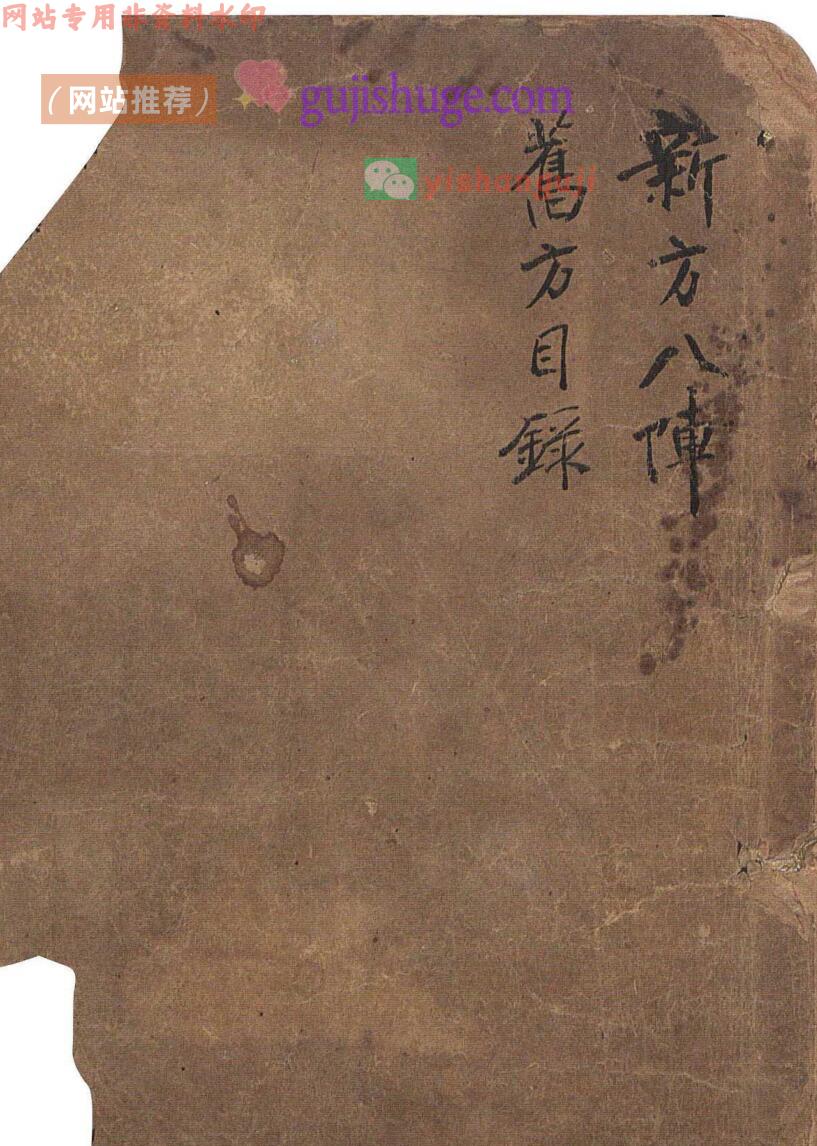 网站专用非资料水印
（网站推荐）
gujishuge.com
yishanguji
新方八陣
舊方目錄